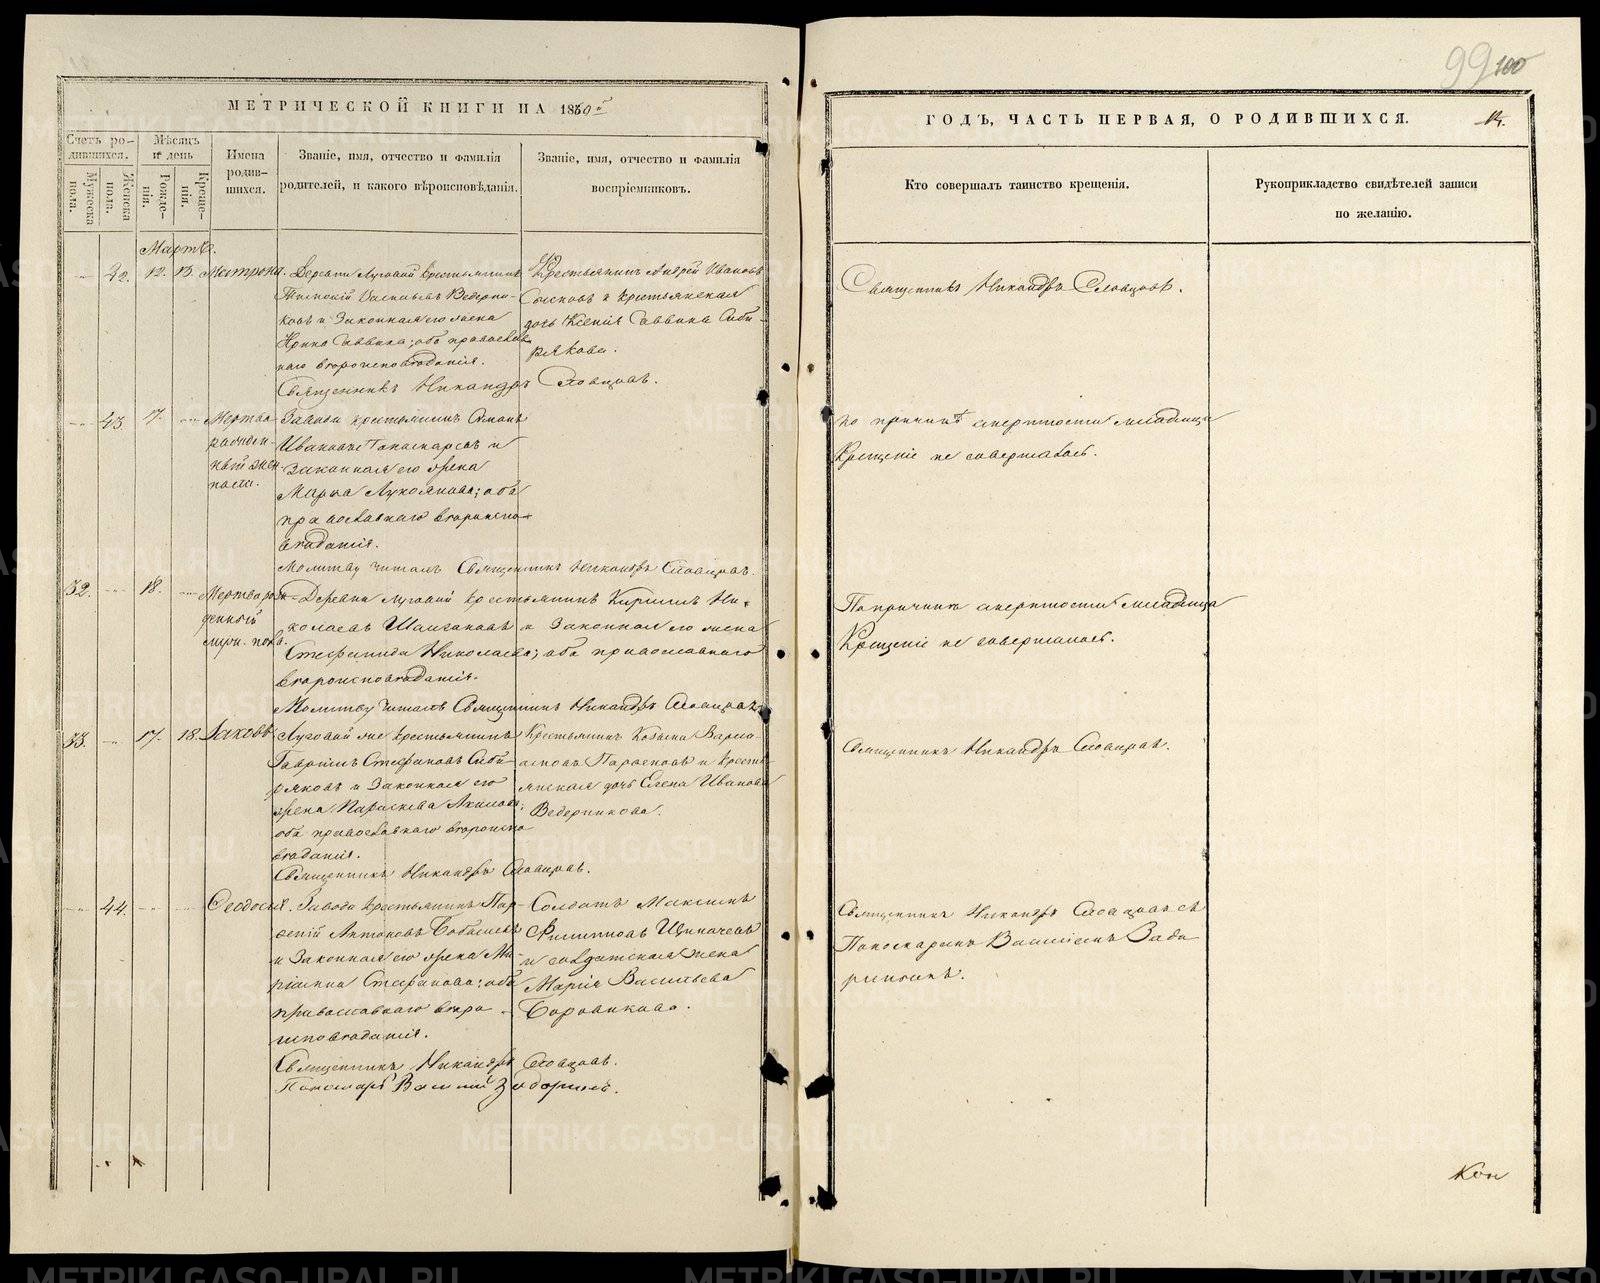 99 100
МЕТРИЧЕСКОЙ КНИГИ НА 1869й
ГОДЪ, ЧАСТЬ ПЕРВАЯ, О РОДИВШИХСЯ.
14.
Счетъ ро-
дившихся.
Мѣсяцъ
и день
Мужеска
пола.
Женска
пола.
Рожде-
нія.
Креще-
нія.
Имена
родив-
шихся.
Званіе, имя, отчество и фамилія
родителей, и какого вѣроисповѣданія.
Званіе, имя, отчество и фамилія
воспріемниковъ.
Кто совершалъ таинство крещенія.
Рукоприкладство свидѣтелей записи
по желанію.
Мартъ.
42. 12. 13. Матрона.
Деревни Луговой крестьянинъ
Васильевъ Ведерни-
ковъ и Законная его жена
Ирина Саввина; оба православ
наго вѣроисповѣданія.
Священникъ Никандръ Словцовъ.
Крестьянинъ Андрей Ивановъ
и крестьянская
дочь Ксенія Саввина Сиби-
рякова.
Священникъ Никандръ Словцовъ.
43. 17.
Мертво-
рожден-
ный жен-
пола.
Завода крестьянинъ Симонъ
Ивановъ Пономаревъ и
Законная его жена
Марѳа Лукоянова; оба
православнаго вѣроиспо-
вѣданія.
Молитву читалъ Священникъ Никандръ Словцовъ.
по причинѣ смертности младенца
Крещеніе не совершалось.
32. 18.
Мертворож-
денный
муж. пола.
Деревни Луговой крестьянинъ Кириллъ Ни-
колаевъ и Законная его жена
Стефанида Николаева; оба православнаго
вѣроисповѣданія.
Молитву читалъ Священникъ Никандръ Словцовъ.
По причинѣ смертности младенца
Крещеніе не совершалось.
33. 17. 18. Іаковъ
Луговой же крестьянинъ
Гавріилъ Стефановъ Сиби-
ряковъ и Законная его
жена Параскева Акилова;
оба православнаго вѣроиспо
вѣданія.
Священникъ Никандръ Словцовъ.
Крестьянинъ Козьма Варла-
амовъ и крестья-
янская дочь Елена Иванова
Ведерникова.
Священникъ Никандръ Словцовъ.
44. Ѳеодосія.
Завода крестьянинъ Пар-
ѳеній Антоновъ
и Законная его жена Ма-
ріанна Стефанова; оба
православнаго вѣро-
исповѣданія.
Священникъ Никандръ Словцовъ.
Пономарь Василій Задоринъ.
Солдатъ Максимъ
Филипповъ Щипачевъ
и солдатская жена
Марія Васильева
Боровикова.
Священникъ Никандръ Словцовъ съ
Пономаремъ Василіемъ Задо
ринымъ.
Кон
METRIKI.GASO-URAL.RU